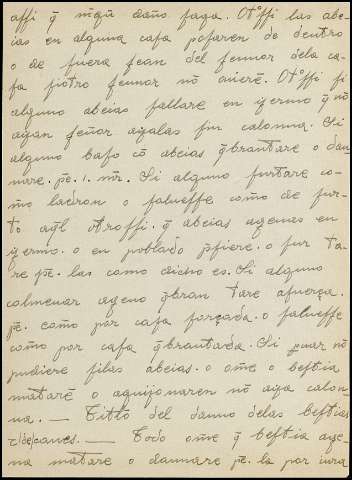 assi q̃ nĩgũ daño faga. Otºssi las abe-
ias en alguna casa posaren de dentro
o de fuera sean del sennor dela ca-
sa si otro sennor nõ ouierẽ. Otºssi si
alguno abeias fallare en yermo q̃ nõ
ayan señor ayalas sin calonna. Si
alguno baso cõ abeias q̃brantare o dan
nare. pẽ. i. mr̃. Si alguno furtare co-
mo ladron o saliesse como de fur-
to aq̃l otrossi. q̃ abeias agenas en
yermo. o en poblado firiere. o fur ta-
re pẽ. las como dicho es. Si alguno
colmenar ageno q̃bran tare afuerça.
pẽ. como por casa forçada. o saliesse
como por casa q̃brantada. Si nõ
pudiere si las abeias. o ome o bestia
matarẽ o aguijonaren nõ aya calon-
na. — Titlo del danno delas bestias
canes. — Todo ome q̃ bestia age-
na matare o dannare pẽ. la por iura